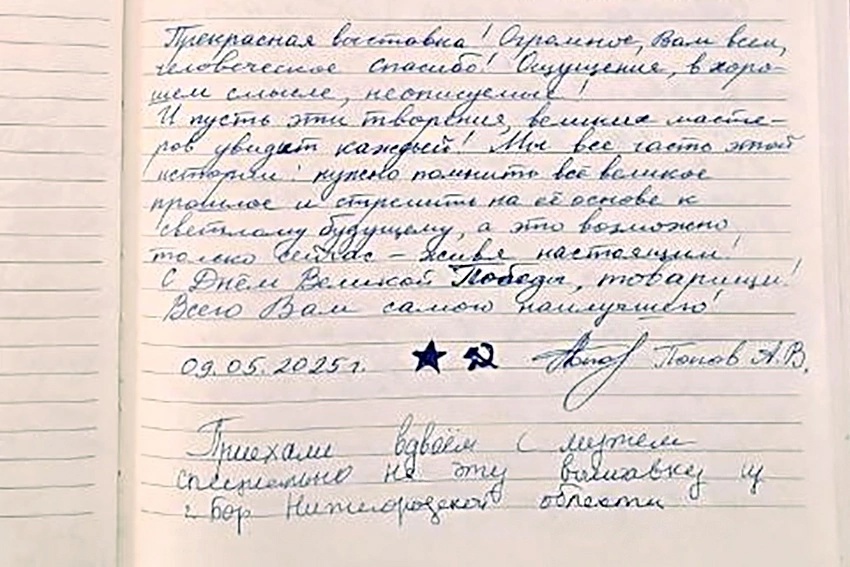 Прекрасная выставка! Огромное, Вам всем,
человеческое спасибо! Ощущения, в хоро-
шем смысле, неописуемые!
И пусть эти творения, великих масте-
ров увидит каждый! Мы все часть этой
истории! нужно помнить всё великое
прошлое и стремить на её основе к
светлому будущему, а это возможно
только сейчас – живя настоящим!
С Днём Великой Победы, товарищи!
Всего Вам самого наилучшего!
09.05.2025г. Попов А.В.
Приехали вдвоём с мужем
специально на эту выставку из
г. Бор Нижегородской области